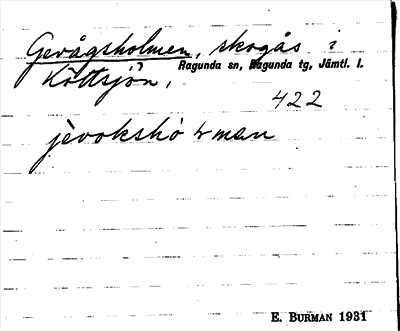 Gevågsholmen, skogås i
Ragunda sn, Ragunda tg, Jämtl. l.
Köttsjön,
422
jèvokshò rman
E. BURMAN 1931